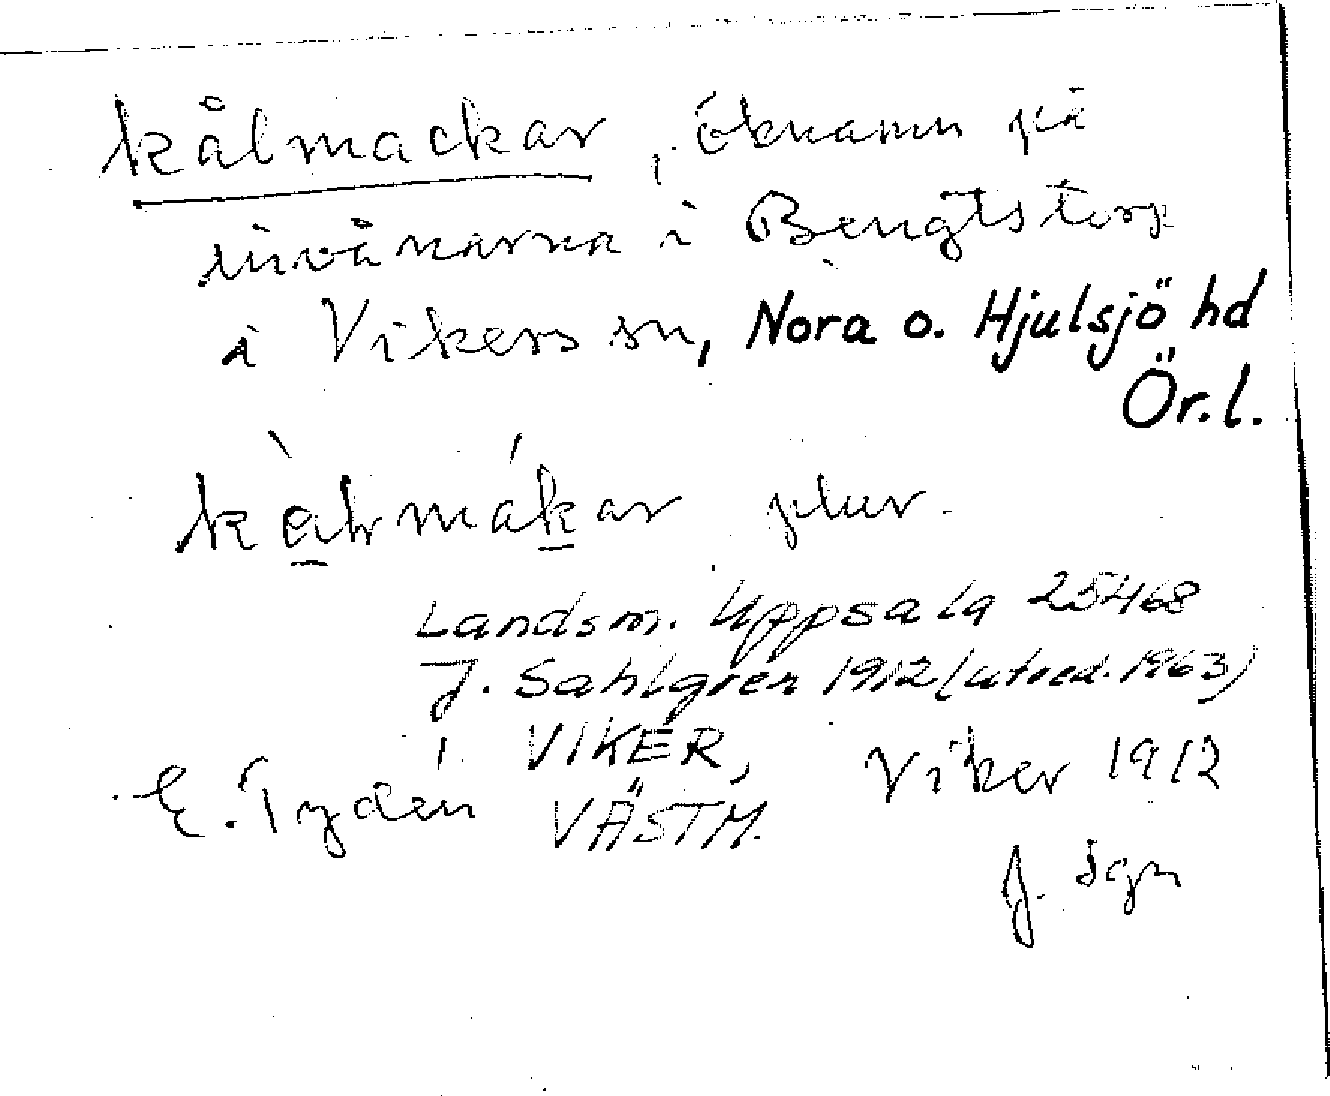 kålmackar, öknamn på
invånarna i Bengtstorp
i Vikers sn, Nora o. Hjulsjö hd
Ör.l.
plur.
Landsm. Uppsala 25468
J. Sahlgren 1912 (utred. 1963)
E. Tydén i VIKER, Viker 1912
VÄSTM.
J. Sgn